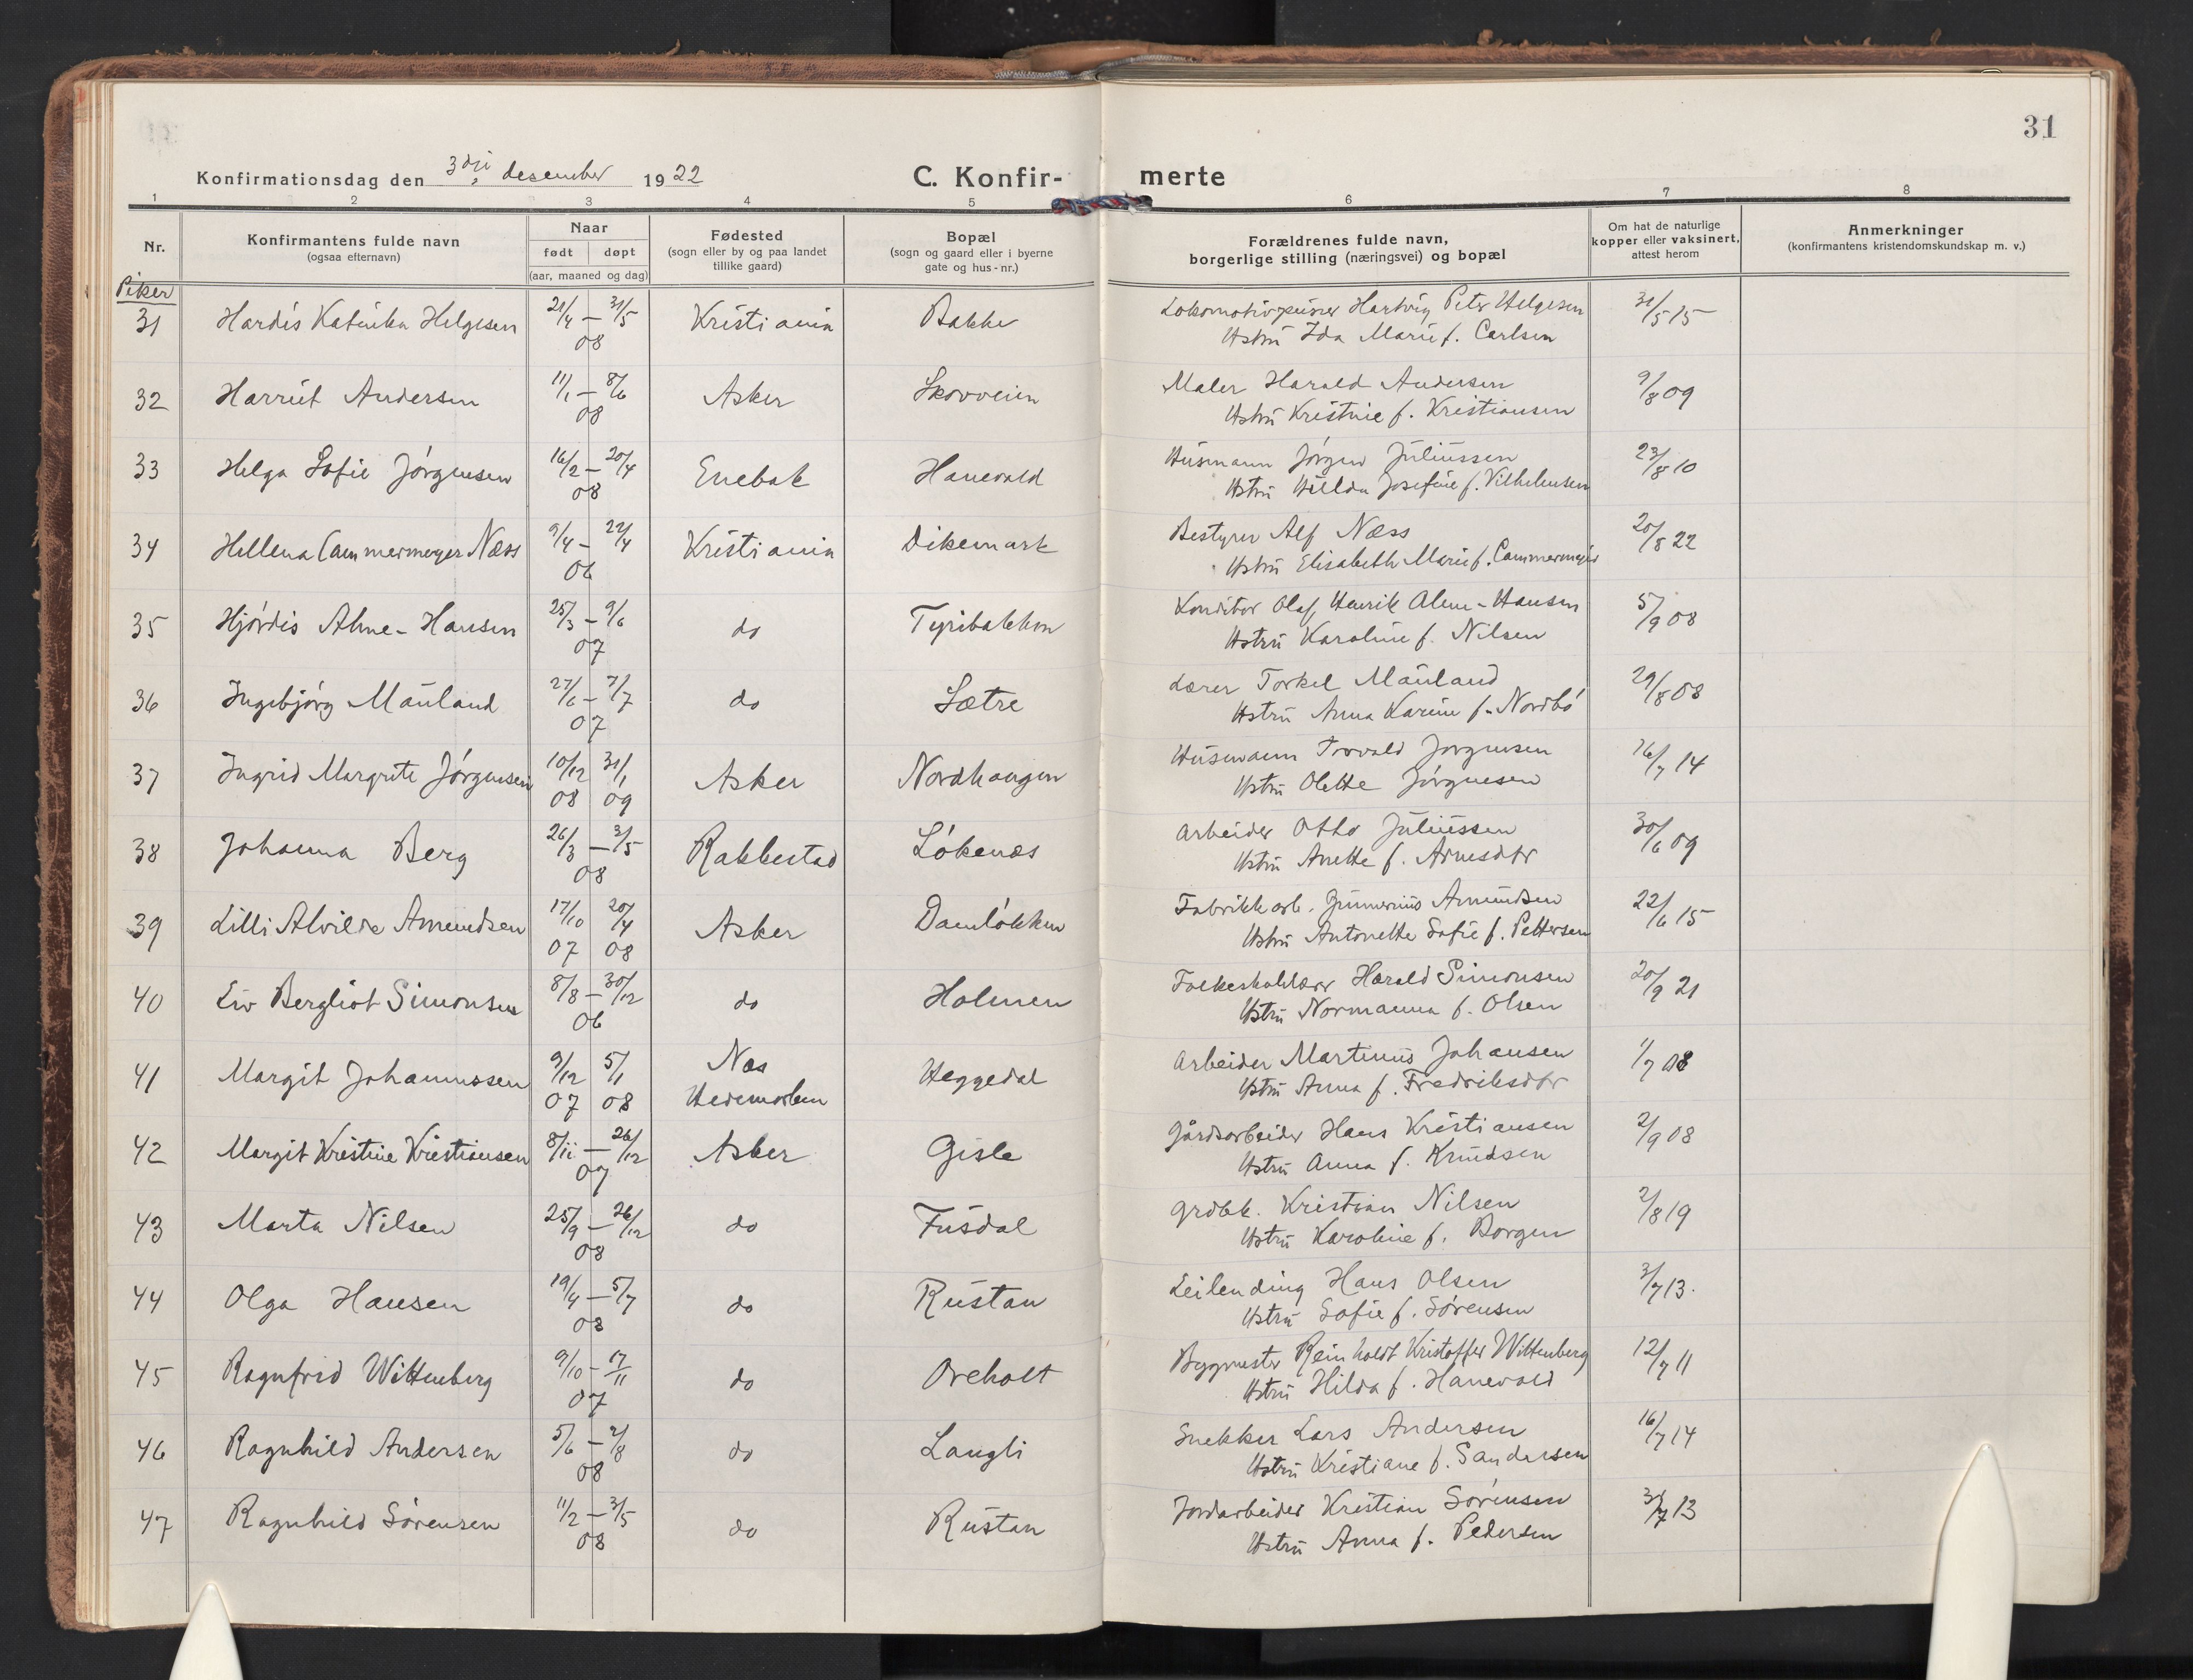 31
Konfirmationsdag den 3dji desember 1922
C. Konfirmerte
1 2 3 4 5 6 7 8
Nr.
Konfirmantens fulde navn
(ogsaa efternavn)
Naar
født døpt
(aar, maaned og dag)
Fødested
(sogn eller by og paa landet
tillike gaard)
Bopæl
(sogn og gaard eller i byerne
gate og hus-nr.)
Forældrenes fulde navn,
borgerlige stilling (næringsvei) og bopæl
Om hat de naturlige
kopper eller vaksinert,
attest herom
Anmerkninger
(konfirmantens kristendomskundskap m. v.)
Piker
31 Hardis Katinka Helgesen 21/4 — 31/5 Kristiania Bakke Lokomotivpusser Hartvig Peter Helgesen 31/5 15
08 Hstru Ida Marie f. Carlsen
32 Harriet Andersen 11/1 — 8/6 Asker Skovveien Maler Harald Andersen 9/8 09
08 Hstru Kristine f. Kristiansen
33 Helga Sofie Jörgensen 16/2 — 20/4 Enebak Hanevold Husmann Jörgen Juliussen 23/8 10
08 Hstru Hilda Josefine f. Vilhelmsen
34 Hellena Cammermeyer Næss 9/4 — 22/4 Kristiania Dikemark Bestyrer Alf Næss 20/8 22
06 Hstru Elisabeth Marie f. Cammermeyer
35 Hjördis Alme-Hansen 25/3 — 9/6 do Tyribakken Konditor Olaf Henrik Alme-Hansen 5/9 08
07 Hstru Karoline f. Nilsen
36 Ingebjörg Mauland 27/6 — 7/7 do Sætre Lærer Torkel Mauland 29/8 08
07 Hstru Anna Karine f. Nordbö
37 Ingrid Margrite Jörgensen 10/12 31/1 Asker Nordhaugen Husmann Torvald Jorgensen 16/7 14
08 09 Hstru Olette Jörgensen
38 Johanna Berg 26/3 — 3/5 Rakkestad Lökenæs Arbeider Otto Juliussen 30/6 09
08 Hstru Anette f. Arnesdtr
39 Lilli Alvilde Amundsen 17/10 20/4 Asker Damlökken Fabrikkarb. Gunnerius Amundsen 22/6 15
07 08 Hstru Antonette Sofie f. Pettersen
40 Liv Bergliot Simonsen 8/8 — 30/12 do Holmen Folkeskolelærer Harald Simonsen 20/9 21
06 Hstru Normanna f. Olsen
41 Margit Johannessen 9/12 5/1 Nes Heggedal Arbeider Martinius Johansen 1/7 08
07 08 Hedemarken Hstru Anna f. Fredriksdtr
42 Margit Kristine Kristiansen 8/11 — 26/12 Asker Gisle Gårdsarbeider Hans Kristiansen 2/9 08
07 Hstru Anna f. Knudsen
43 Marta Nilsen 25/9 — 26/12 do Fusdal Grdbk. Kristian Nilsen 2/8 19
08 Hstru Karoline f. Borgen
44 Olga Hansen 19/4 — 5/7 do Rustan Leilending Hans Olsen 3/7 13.
08 Hstru Sofie f. Sörensen
45 Ragnfrid Wittenberg 9/10 — 17/11 do Oreholt Byggmester Reinholdt Kristoffer Wittenberg 12/7 11
07 Hstru Hilda f. Hanevold
46 Ragnhild Andersen 5/6 — 2/8 do Langli Snekker Lars Andersen 16/7 14
08 Hstru Kristiane f. Sandersen
47 Ragnhild Sörensen 11/2 — 3/5 do Rustan Jordarbeider Kristian Sörensen 3/7 13
08 Hstru Anna f. Pedersen